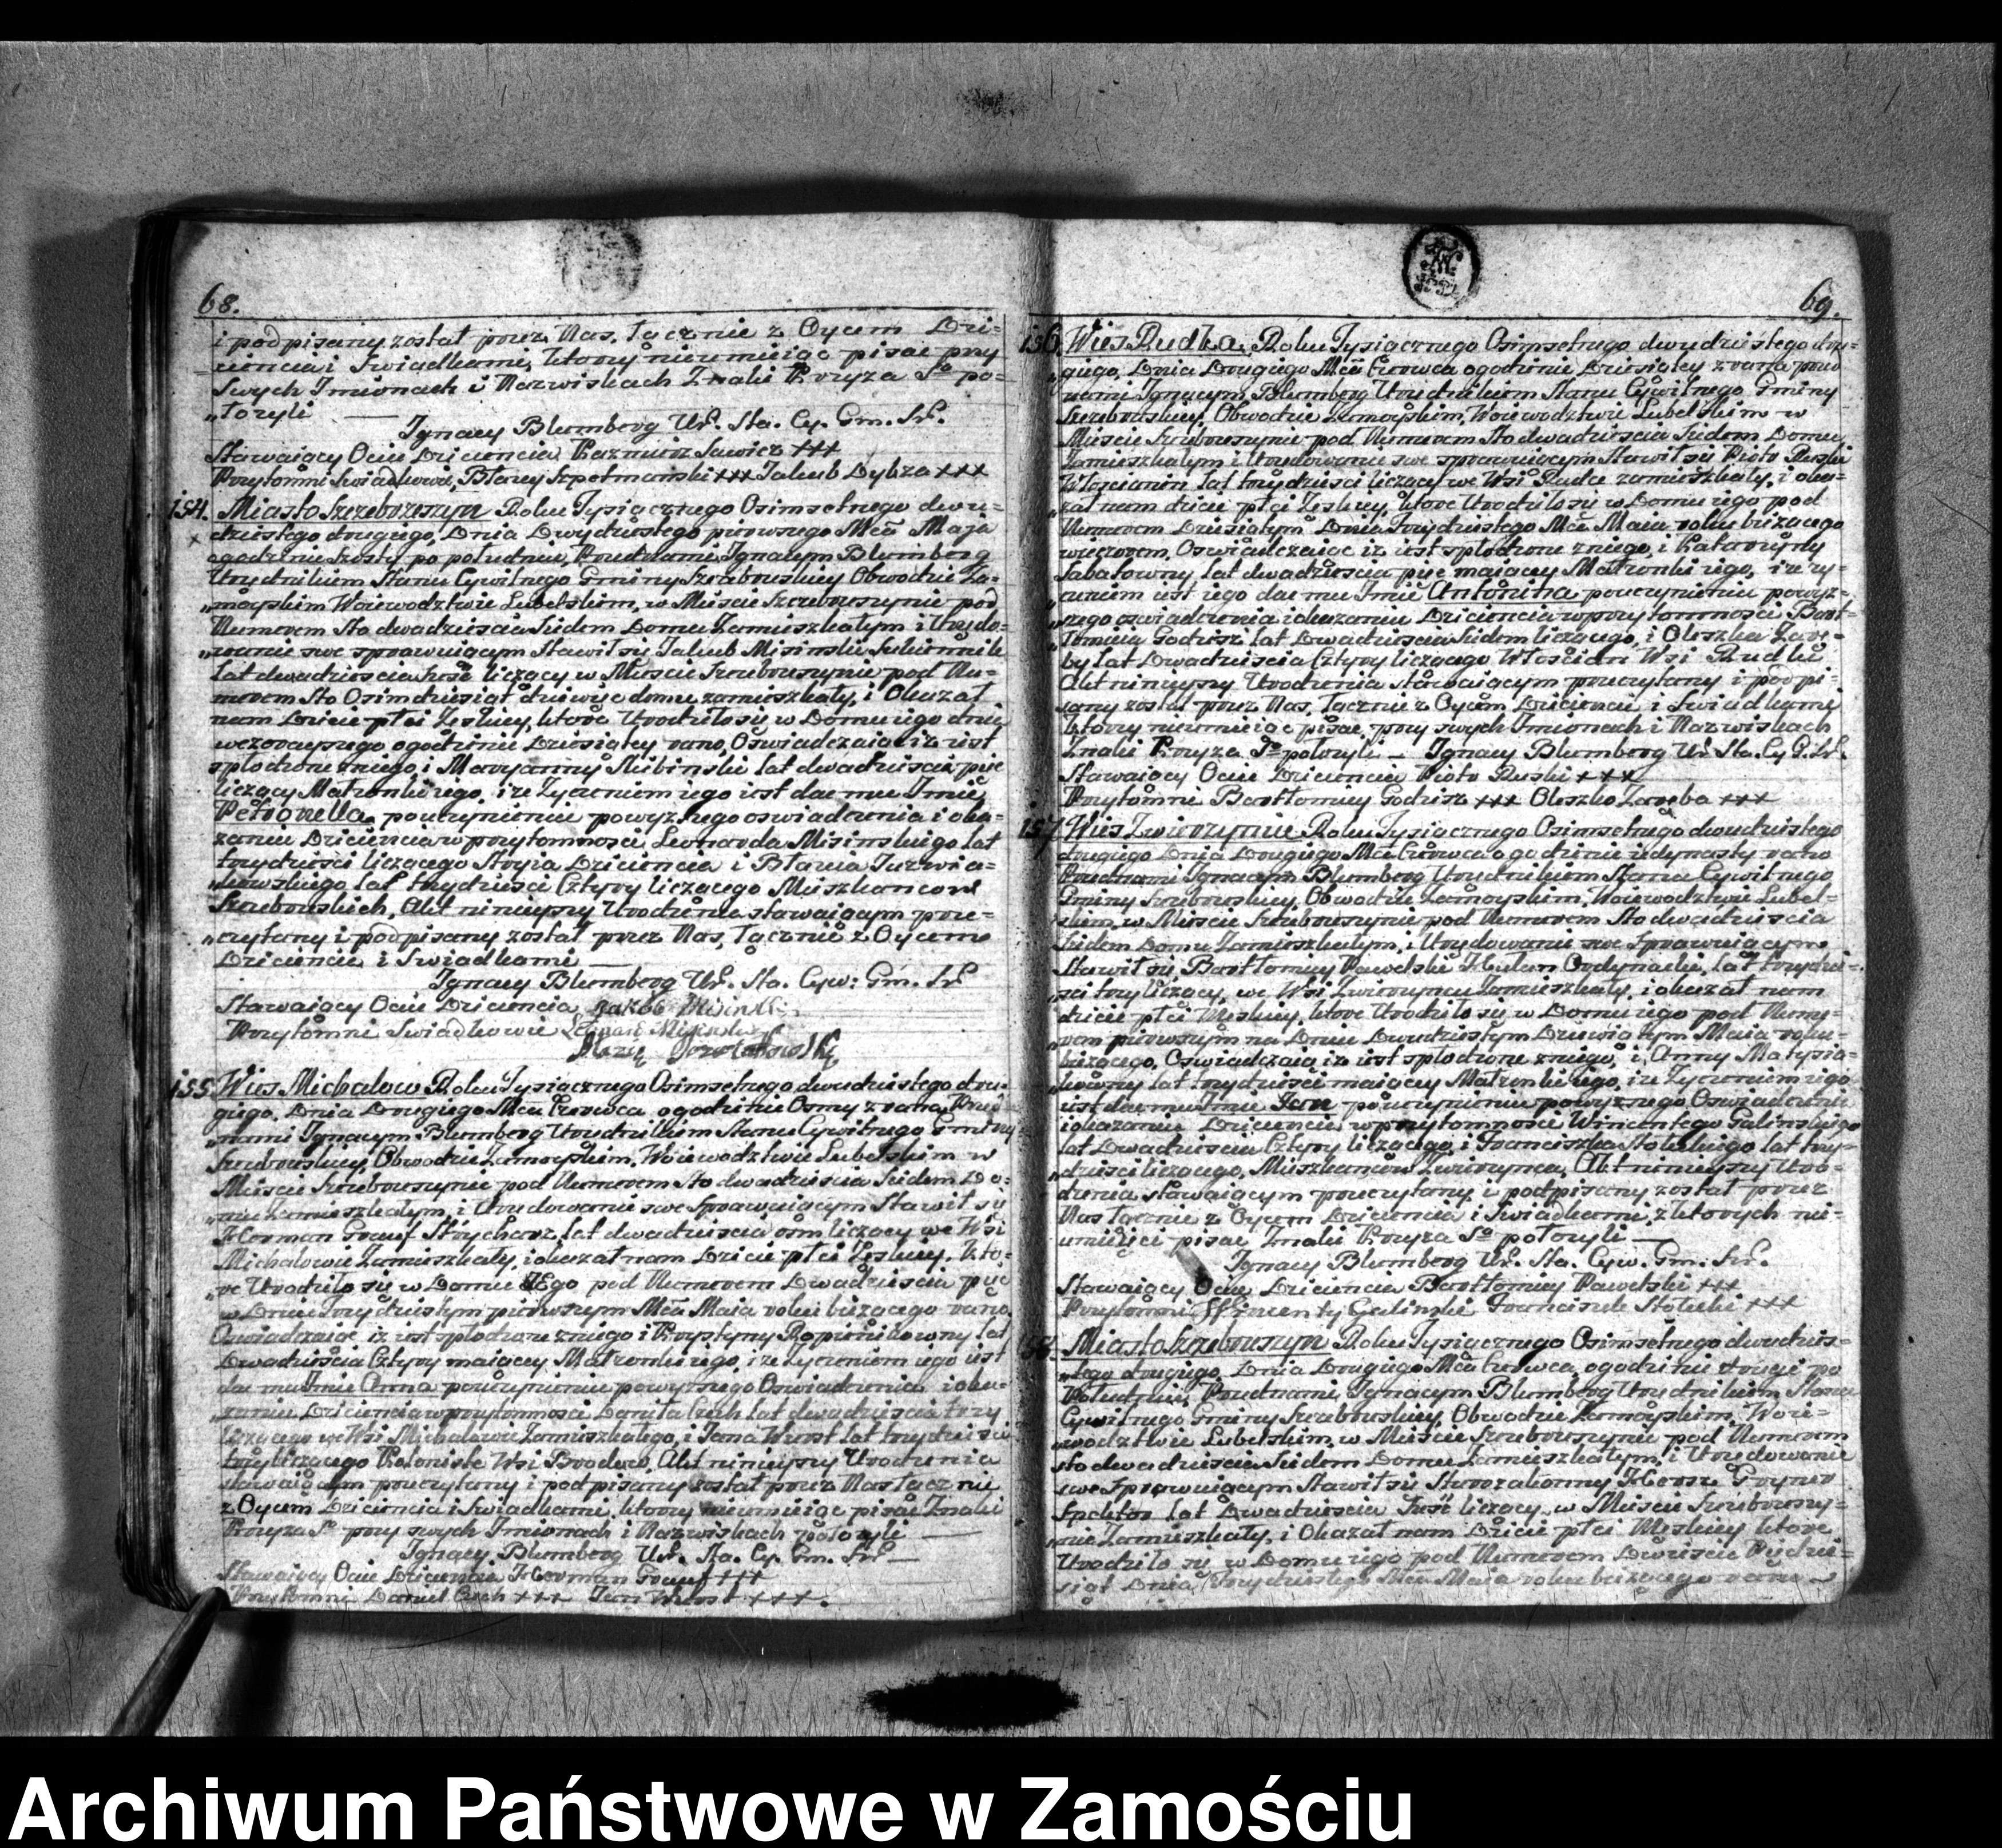 68.
i podpisany został przez Nas, łącznie z Oycem Dzi-
ciencia i Swiadkami, ktorzy nieumieiąc pisac przy
Swych Imionach i Nazwiskach Znaki Krzyza S° po-
„łozyli
Ignacy Blumberg Ur. Sta. Cy. Gm. Sr.
Stawaiący Ociec Dziciencia Kazmierz Sawicz +++
Przytomni Swiadkowie, Błazey Szpetmanski +++ Jakub Dybza +++
154. Miasto Szczebrzeszyn Roku Tysiącznego Osimsetnego dwu-
dziestego drugiego, Dnia Dwydziestego pierwszego Mca Maja
ogodzinie Szosty po południu, Przednami Ignacym Blumberg
Urzędnikiem Stanu Cywilnego Gminy Szczebrzeskiey Obwodzie Za-
„moyskim Woiewodztwie Lubelskim, w Miescie Szczebrzeszynie pod
Numerem Sto dwadziescia Siedem Domu Zamieszkałym i Urzędo-
„wanie swe sprawuiącym Stawił się Jakub Misinski Sukiennik
Lat dwadziescia szesc liczący w Miescie Szczebrzeszynie pod Nu-
merem Sto Osimdziesiąt dziewięc domu zamieszkały, i Okazał
nam Dziecie płci Zeskiey, ktore Urodziło się w Domu iego dnia
wczorayszego ogodzinie Dziesiątey rano, Oswiadczaiąc iz iest
spłodzone zniego, i Maryanny Skibinski lat dwadziescia pięc
liczący Małzonki iego, i ze Zyczeniem iego iest dac mu Imie
Petronella, pouczynieniu powyzszego oswiadczenia i oka-
zaniu Dziciencia w przytomnosci Leonarda Misinskiego lat
trzydziesci liczącego Stryja Dziciencia i Błazeia Jurzwia-
„kowskiego lat trzydziesci Cztyry liczącego Mieszkancow
Szczebrzeskich, Akt ninieyszy Urodzenia stawaiącym prze-
„czytany i podpisany został przez Nas, łącznie z Oycem
Dziciencia i Swiadkami
Ignacy Blumberg Ur. Sta. Cyw: Gm. Sr
Stawaiący Ociec Dziciencia Jakób Misinski
Przytomni Swiadkowie
155. Wies Michalow Roku Tysiącznego Osimsetnego dwudziestego dru-
giego, Dnia Drugiego Mca Czerwca ogodzinie Osmy zrana, Przed
„nami Ignacym Blumberg Urzędnikiem Stanu Cywilnego Gminy
Szczebrzeskiey, Obwodzie Zamoyskim, Woiewodztwie Lubelskim w
Miescie Szczebrzeszynie pod Numerem Sto dwadziescia Siedem Do-
„mu Zamieszkałym, i Urzędowanie swe Sprawuiącym Stawił się
Herman Grauf Strycharz, lat dwadziescia osm liczący we Wsi
Michalowie Zamieszkały, i okazał nam Dziecie płci Zeskiey, kto-
„re Urodziło się w Domu Jego pod Numerem Dwadziescia pięc
w Dniu trzydziestym pierwszym Mca Maia roku bizącego rano,
Oswiadczaiąc iz iest spłodzone zniego i Krystyny Lat
Dwadziescia Cztyry maiącey Małzonki iego, i ze Zyczeniem iego iest
dac mu Imie Anna pouczynieniu powyzszego Oswiadczenia i oka-
„zaniu Dziciencia w przytomnosci Daniela Czech lat dwadziescia trzy
liczącego we Wsi Michalowie Zamieszkałego, i Jana Wurst lat trzydziesci
trzy liczącego Koloniste Wsi Brodow, Akt ninieyszy Urodzenia
stawaiącym przeczytany i podpisany został przez Nas łącznie
z Oycem Dziciencia i Swiadkami, ktorzy nieumieiąc pisac Znaki
Krzyza S° przy swych Imionach i Nazwiskach połozyli
Ignacy Blumberg Ur. Sta. Cy. Gm. Sr
Stawaiący Ociec Dziciencia Herman Grauf +++
Przytomni Daniel Czech +++ Jan Wurst +++.
69.
156. Wies Rudka, Roku Tysiącznego Osimsetnego dwudziestego dru-
„giego, Dnia Drugiego Mca Czerwca ogodzinie Dziesiątey zrana przed
nami Ignacym Blumberg Urzędnikiem Stanu Cywilnego Gminy
Szczebrzeskiey, Obwodzie Zamoyskim, Woiewodztwie Lubelskim w
Miescie Szczebrzeszynie pod Numerem Sto dwadziescia Siedem Domu
Zamieszkałym i Urzędowanie swe sprawuiącym Stawił się Piotr Ruski
Włoscianin lat trzydziesci liczący we Wsi Rudce zamieszkały, i oka-
zał nam dziecie płci Zeskiey, ktore Urodziło się w Domu iego pod
Numerem Dziesiątym Dnia Trzydziestego Mca Maia roku bizącego
wieczorem, Oswiadczaiąc iz iest spłodzone zniego, i Katarzyny
Sabatowny lat dwadziescia pięc maiącey Małzonki iego, i ze zy-
„czeniem iest iego dac mu Imie Antonina pouczynieniu powyz-
„szego oswiadczenia i okazaniu Dziciencia w przytomnosci Bart-
„łomieia Godzisz lat Dwadziescia Siedem liczącego, i Oleszka Zare-
by lat Dwadziescia Cztyry liczącego Włoscian Wsi Rudki
Akt ninieyszy Urodzenia stawaiącym przeczytany i podpi-
sany został przez Nas, łącznie z Oycem Dziciencia i Swiadkami
ktorzy nieumieiąc pisac, przy swych Imionach i Nazwiskach
Znaki Krzyza S° połozyli — Ignacy Blumberg Ur Sta. Cy G. Sr.
Stawaiący Ociec Dziciencia Piotr Ruski +++
Przytomni Bartłomiey Godzisz +++ Oleszko Zareba +++
157 Wies Zwierzyniec Roku Tysiącznego Osimsetnego dwudziestego
drugiego Dnia Drugiego Mca Czerwca ogodzinie iedynasty rano
Przednami Ignacym Blumberg Urzędnikiem Stanu Cywilnego
Gminy Szczebrzeskiey, Obwodzie Zamoyskim, Woiewodztwie Lubel-
skim, w Miescie Szczebrzeszynie pod Numerem Sto dwadziescia
Siedem Domu Zamieszkałym, i Urzędowanie swe Sprawuiącym
Stawił się, Bartłomiey Pawelski Ordynacki, lat trzydzi-
„sci trzy liczący, we Wsi Zwierzyncu Zamieszkały, i okazał nam
dziecie płci Męskiey, ktore Urodziło się w Domu iego pod Nume-
„rem pierwszym na Dniu Dwudziestym Dziewiątym Maia roku
bizącego, Oswiadczaiąc iz iest spłodzone zniego, i Anny Matysia-
„kowny lat trzydziesci maiącey Małzonki iego, i ze Zyczeniem iego
iest dac mu Imie Jan pouczynieniu powyzszego Oswiadczenia
i okazaniu Dziciencia w przytomnosci Wincentego Galinskiego
lat Dwadziescia Cztyry liczącego, i Franciszka Stoleckiego lat trzy-
„dziesci liczącego, Mieszkancow Zwierzynca, Akt ninieyszy Uro-
dzenia stawaiącym przeczytany i podpisany został przez
Nas łącznie z Oycem Dziciencia i Swiadkami, z ktorych nie-
umieięci pisac Znaki Krzyza S° połozyli —
Ignacy Blumberg Ur. Sta. Cyw. Gm. Sr.
Stawaiący Ociec Dziciencia Bartłomiey Pawelski +++
Przytomni Wincenty Galinski Franciszek Stolecki +++
158. Miasto Szczebrzeszyn Roku Tysiącznego Osimsetnego dwudzies-
„tego drugiego, Dnia Drugiego Mca Czerwca, ogodzinie drugi po
Południu, Przednami Ignacym Blumberg Urzędnikiem Stanu
Cywilnego Gminy Szczebrzeskiey, Obwodzie Zamoyskim, Woie-
„wodztwie Lubelskim, w Miescie Szczebrzeszynie pod Numerem
sto dwadziescia Siedem Domu Zamieszkałym, i Urzędowanie
swe Sprawuiącym Stawił się Starozakonny Hersz Gryner
Spektor lat Dwadziescia Szesc liczący, w Miescie Szczebrzeszy-
„nie Zamieszkały, i Okazał nam Dziecie płci Męskiey ktore
Urodziło się w Domu iego pod Numerem Dwiescie Pięcdzie-
siąt Dnia Trzydziestego Mca Maia roku bizącego rano
Archiwum Państwowe w Zamościu